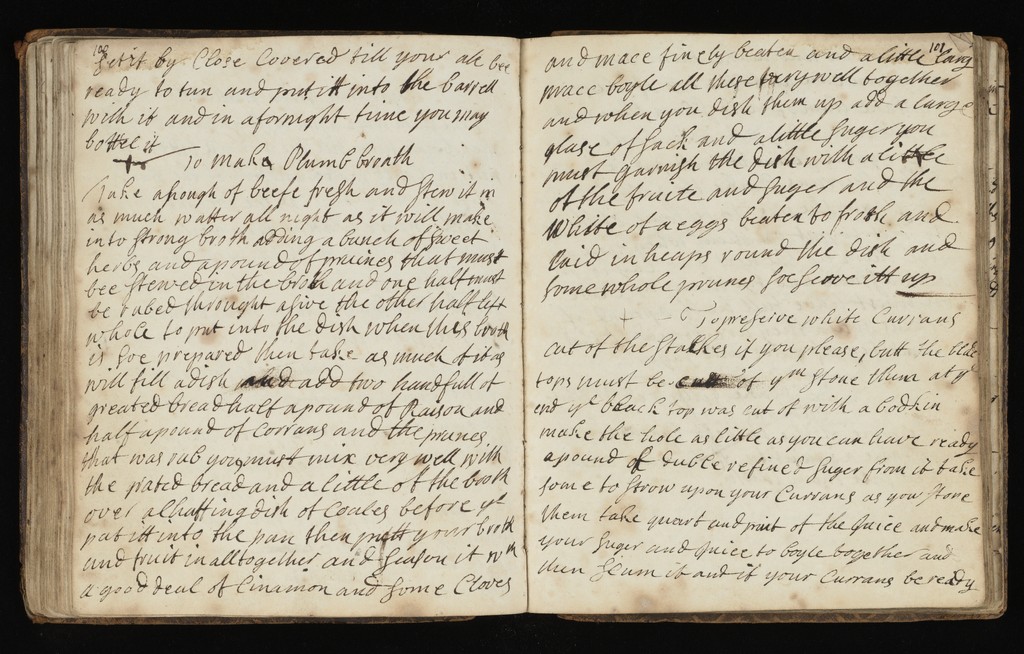 100
sett it by Close Covered till your ale bee
ready to tun and put itt into the barrell
with it and in a fornight time you may
bottel it
To make Plumb broath
Take a hough of beefe fresh and stew it in
as much watter all night as it will make
into strong broth adding a bunch of sweet
herbs and a pound of pruines that must
bee stewed in the broth and one half must
be rubed throught a sive the other half left
whole to put into the dish when this broth
is soe prepared then take as much of it as
will fill a dish and add two handfull of
greated bread half a pound of Raison and
half a pound of Corrans and the prunes
that was rub you must mix very well with
the grated bread and a little of the broth
over a Chaffing dish of Coales before yt
put itt into the pan then putt your broth
and fruit in alltogether and season it with
a good deal of Cinamon and some Cloves
101
and mace finely beaten and a little larg
mace boyle all these very well together
and when you dish them up add a large
glase of sack and a little suger you
must garnish the dish with a little
of the fruite and suger and the
White of a eggs beaten to froth and
laid in heaps round the dish and
some whole prunes soe serve itt up
To preserve white Currans
cut of the stalkes if you please, butt the blak
tops must be cutt of ym stone them at ye
end ye black top was cut of with a bodkin
make the hole as little as you can have ready
a pound of duble refined suger from it take
some to strow upon your Currans as you stone
them take quart and pint of the juice and make
your suger and juice to boyle together and
then scum it and if your Currans be ready